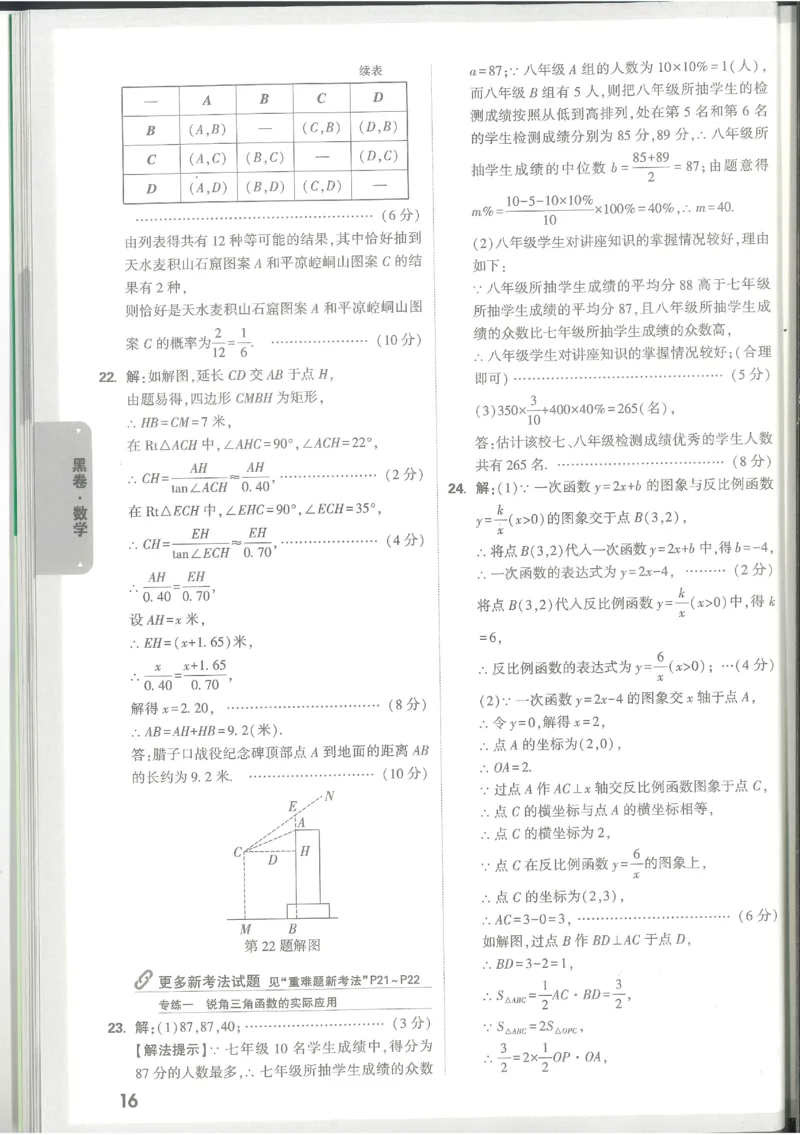 续表
— A B C D
B (A,B) — (C,B) (D,B)
C (A,C) (B,C) — (D,C)
D (A,D) (B,D) (C,D) —
……………………………………(6分)
由列表得共有12种等可能的结果,其中恰好抽到
天水麦积山石窟图案A和平凉崆峒山图案C的结
果有2种,
则恰好是天水麦积山石窟图案A和平凉崆峒山图
案C的概率为2/12=1/6. …………………(10分)
22. 解:如解图,延长CD交AB于点H,
由题易得,四边形CMBH为矩形,
∴HB=CM=7米,
在Rt△ACH中,∠AHC=90°,∠ACH=22°,
∴CH=AH/tan∠ACH≈AH/0.40,…………………(2分)
在Rt△ECH中,∠EHC=90°,∠ECH=35°,
∴CH=EH/tan∠ECH≈EH/0.70,…………………(4分)
∴AH/0.40=EH/0.70,
设AH=x米,
∴EH=(x+1.65)米,
∴x/0.40=(x+1.65)/0.70,
解得x=2.20,…………………………(8分)
∴AB=AH+HB=9.2(米).
答:腊子口战役纪念碑顶部点A到地面的距离AB
的长约为9.2米. ……………………(10分)
N
E
A
C
D
H
M
B
第22题解图
更多新考法试题 见“重难题新考法”P21~P22
专练一 锐角三角函数的实际应用
23. 解:(1)87,87,40;………………………(3分)
【解法提示】∵七年级10名学生成绩中,得分为
87分的人数最多,∴七年级所抽学生成绩的众数
a=87;∵八年级A组的人数为10×10%=1(人),
而八年级B组有5人,则把八年级所抽学生的检
测成绩按照从低到高排列,处在第5名和第6名
的学生检测成绩分别为85分,89分,∴八年级所
抽学生成绩的中位数b=(85+89)/2=87;由题意得
m%=(10-5-10×10%)/10×100%=40%,∴m=40.
(2)八年级学生对讲座知识的掌握情况较好,理由
如下:
∵八年级所抽学生成绩的平均分88高于七年级
所抽学生成绩的平均分87,且八年级所抽学生成
绩的众数比七年级所抽学生成绩的众数高,
∴八年级学生对讲座知识的掌握情况较好;(合理
即可)……………………………………(5分)
(3)350×3/10+400×40%=265(名),
答:估计该校七、八年级检测成绩优秀的学生人数
共有265名. ……………………………(8分)
24. 解:(1)∵一次函数y=2x+b的图象与反比例函数
y=k/x(x>0)的图象交于点B(3,2),
∴将点B(3,2)代入一次函数y=2x+b中,得b=-4,
∴一次函数的表达式为y=2x-4, ………(2分)
将点B(3,2)代入反比例函数y=k/x(x>0)中,得k
=6,
∴反比例函数的表达式为y=6/x(x>0);…(4分)
(2)∵一次函数y=2x-4的图象交x轴于点A,
∴令y=0,解得x=2,
∴点A的坐标为(2,0),
∴OA=2.
∵过点A作AC⊥x轴交反比例函数图象于点C,
∴点C的横坐标与点A的横坐标相等,
∴点C的横坐标为2,
∵点C在反比例函数y=6/x的图象上,
∴点C的坐标为(2,3),
∴AC=3-0=3,…………………………(6分)
如解图,过点B作BD⊥AC于点D,
∴BD=3-2=1,
∴S△ABC=1/2AC·BD=3/2,
∵S△ABC=2S△OPC,
∴3/2=2×1/2OP·OA,
黑卷·数学
16